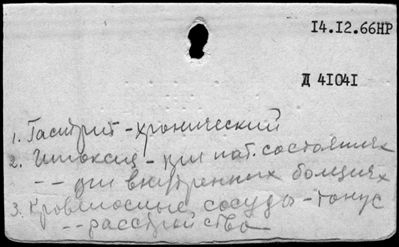 14.12.66НР
Д 41041
1. Гастрит - хронический
2. Гипоксия - при пат. состояниях
-- при внутренних болезнях
3. Кровеносные сосуды - тонус
-- расстройства